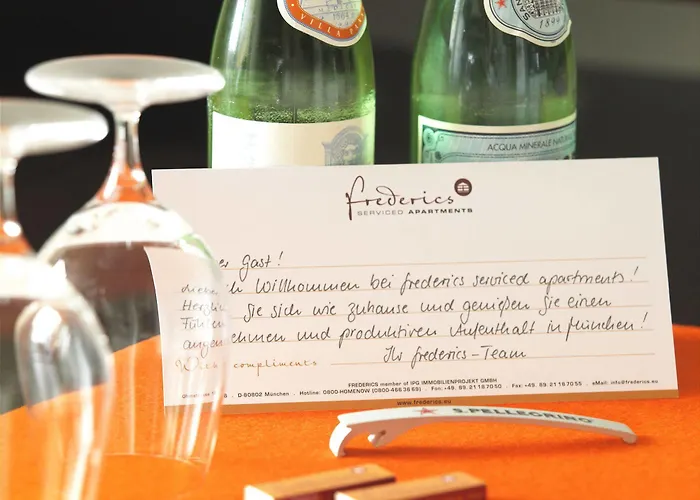 VILLA
1899
ACQUA MINERALE NAT
frederics
SERVICED APARTMENTS
er Gast!
Herzlich Willkommen bei frederics serviced apartments!
Fühlen Sie sich wie zuhause und genießen Sie einen
angenehmen und produktiven Aufenthalt in München!
With compliments Ihr frederics-Team
FREDERICS member of IPG IMMOBILIENPROJEKT GMBH
D-80802 München . Hotline: 0800-HOMENOW (0800-466 36 69) . Fon: +49. 89. 21 16 70 50 . Fax: +49. 89. 21 16 70 55 . eMail: info@frederics.eu
www.frederics.eu
S.PELLEGRINO